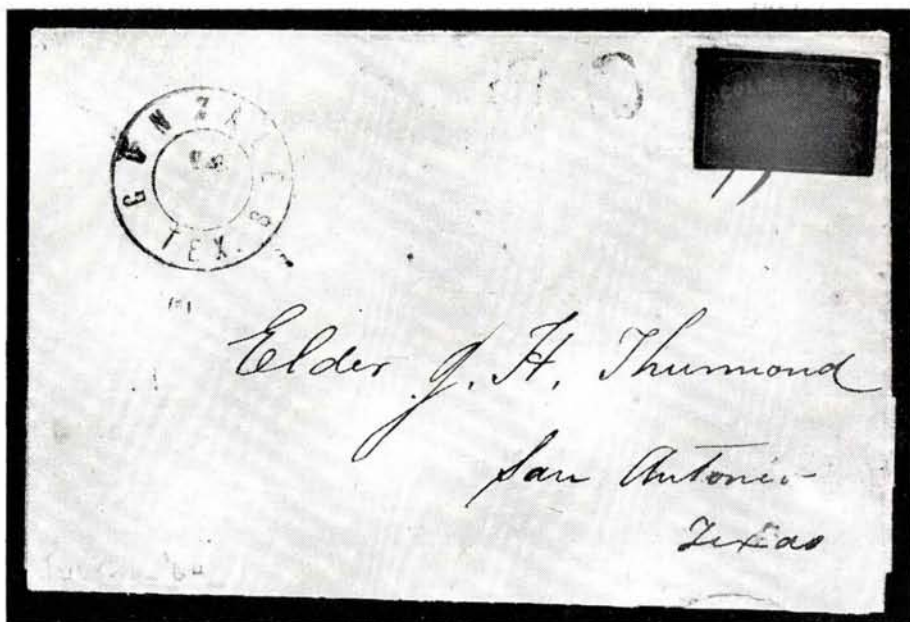 GANZALES
TEX.
Elder J. H. Thurmond
San Antonio
Texas